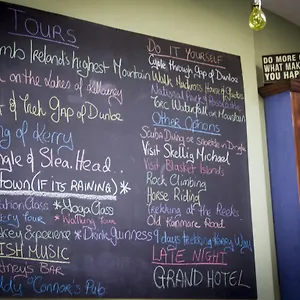 TOURS
mb Ireland's highest Mountain
on the Lakes of Killarney
& Trek Gap of Dunloe
ng of Kerry
ngle & Slea Head..
town (IF ITS RAINING) *
Class * Yoga Class
Tour * Walking Tour
key Experience * Drink Guinness
ISH MUSIC
tneys BAR
ddy O'Connor's Pub
DO IT YOURSELF
Cycle through Gap of Dunloe
Walk National
National Park
Torc Waterfall or Mountain
Other Options
Scuba Dive or
Visit Skellig Michael
Visit Blasket Islands
Rock Climbing
Horse Riding
Trekking of the Reeks
Old Kenmare Road
days trekking Kerry Way
LATE NIGHT
GRAND HOTEL
DO MORE
WHAT MAKE
YOU